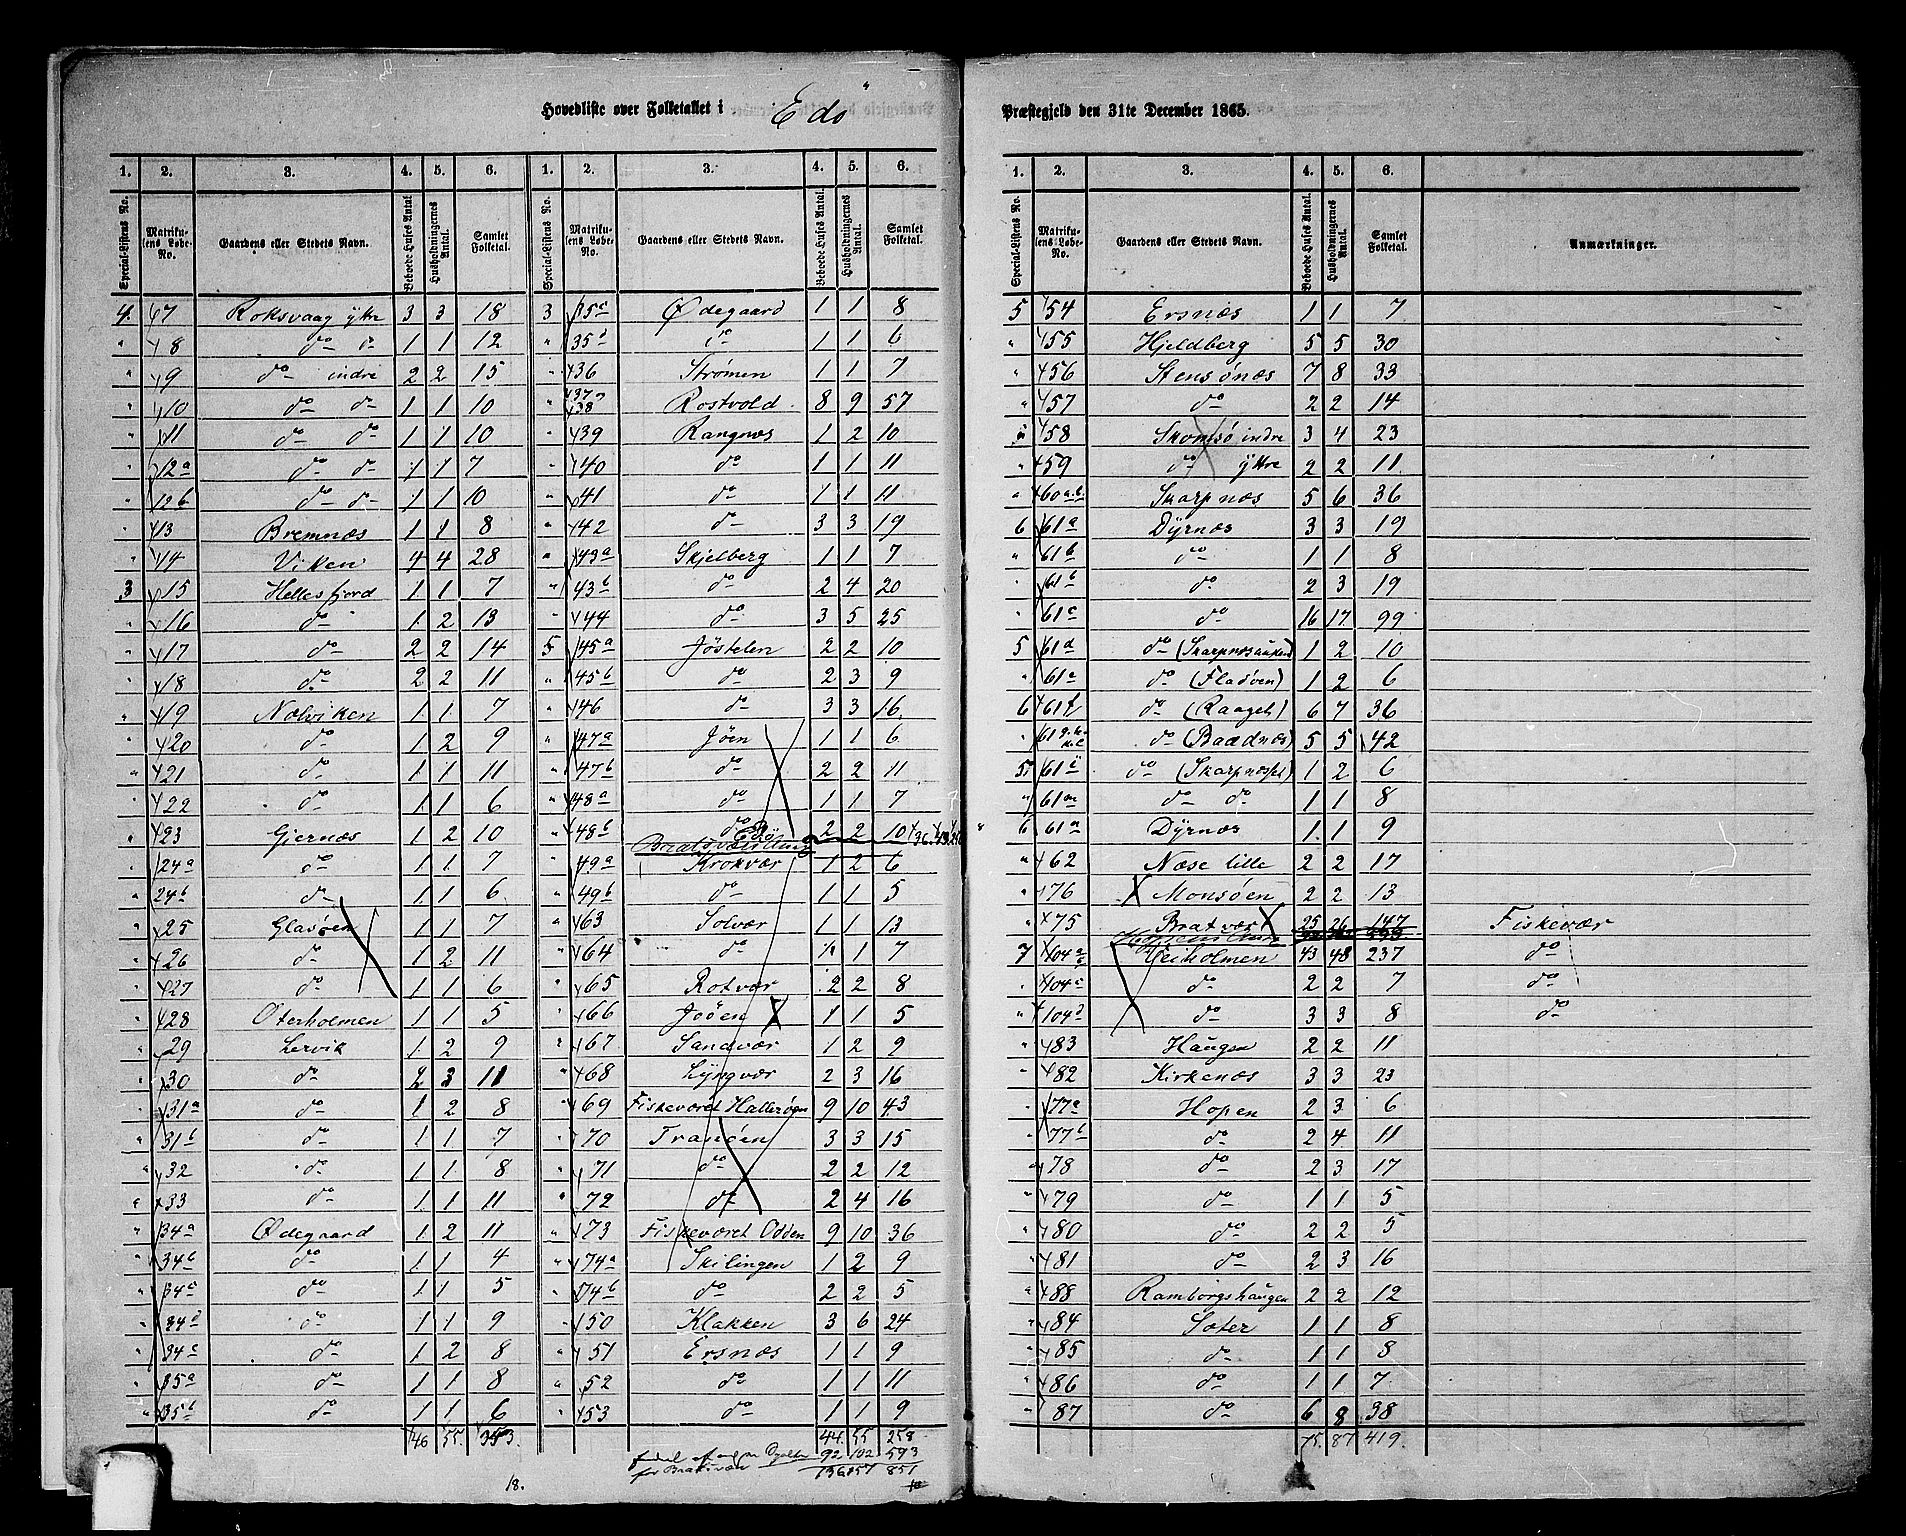 Hovedliste over Folketallet i Edø Præstegjeld den 31te December 1865.
1. 2. 3. 4. 5. 6. 1. 2. 3. 4. 5. 6.
Special-Listens No. Matrikulens Løbe-No. Gaardens eller Stedets Navn. Beboede Huses Antal. Husholdningernes Antal. Samlet Folketal. Special-Listens No. Matrikulens Løbe-No. Gaardens eller Stedets Navn. Beboede Huses Antal. Husholdningernes Antal. Samlet Folketal.
4. 7 Roksvaag ytre 3 3 18
" 8 do do 1 1 12
" 9 do indre 2 2 15
" 10 do do 1 1 10
" 11 do do 1 1 10
" 12a do do 1 1 7
" 12b do do 1 1 10
" 13 Bremnæs 1 1 8
" 14 Viken 4 4 28
3 15 Hellesfjord 1 1 7
" 16 do 1 2 13
" 17 do 2 2 14
" 18 do 2 2 11
" 19 Nelviken 1 1 7
" 20 do 1 2 9
" 21 do 1 1 11
" 22 do 1 1 6
" 23 Gjernæs 1 2 10
" 24a do 1 1 7
" 24b do 1 1 6
" 25 Glasøen 1 1 7
" 26 do 1 2 11
" 27 do 1 1 6
" 28 Oterholmen 1 1 5
" 29 Lervik 1 2 9
" 30 do 2 3 11
" 31a do 1 2 8
" 31b do 1 1 7
" 32 do 1 1 8
" 33 do 1 1 11
" 34a Ødegaard 1 2 11
" 34b do 1 1 4
" 34c do 1 1 5
" 34d do 1 1 9
" 34e do 1 2 8
" 35a do 1 1 8
" 35b do 1 1 6
46 55 353.
3 35c Ødegaard 1 1 8
" 35d do 1 1 6
" 36 Strømen 1 1 7
" 37 38 Rostvold 8 9 57
" 39 Rangnæs 1 2 10
" 40 do 1 1 11
" 41 do 1 1 11
" 42 do 3 3 19
" 43a Skjelberg 1 1 7
" 43b do 2 4 20
" 44 do 3 5 25
5 45a Jøstelen 2 2 10
" 45b do 2 3 9
" 46 do 3 3 16
" 47a Jøen 1 1 6
" 47b do 2 2 11
" 48a do 1 1 7
" 48b do 2 2 10
" 49a Krokvær 1 2 6
" 49b do 1 1 5
" 63 Solvær 1 1 13
" 64 do 1 1 7
" 65 Rotvær 2 2 8
" 66 Jøen 1 1 5
" 67 Sandvær 1 2 9
" 68 Lyngvær 2 3 16
" 69 Fiskeværet Hallerøen 9 10 43
" 70 Tranøen 3 3 15
" 71 do 2 2 12
" 72 do 2 4 16
" 73 Fiskeværet Odden 9 10 36
" 74a Skilingen 1 2 9
" 74b do 2 2 5
" 50 Klakken 3 6 24
" 51 Ersnæs 1 1 9
" 52 do 1 1 11
" 53 do 1 1 9
44. 55 258.
92 102 593
136 157 851
18.
1. 2. 3. 4. 5. 6.
Special-Listens No. Matrikulens Løbe-No. Gaardens eller Stedets Navn. Beboede Huses Antal. Husholdningernes Antal. Samlet Folketal. Anmærkninger.
5 54 Ersnæs 1 1 7
" 55 Hjeldberg 5 5 30
" 56 Stensønæs 7 8 33
" 57 do 2 2 14
" 58 Skomsø indre 3 4 23
" 59 do ytre 2 2 11
" 60a.b. Skarpnæs 5 6 36
6 61a Dyrnæs 3 3 19
" 61b do 1 1 8
" 61b do 2 3 19
" 61c do 16 17 99
5 61d do 1 2 10
" 61e do (Fladøen) 1 2 6
6 61f do 6 7 36
" 61 do (Baadnæs) 5 5 42
5 61i do 1 2 6
" 61m do do 1 1 8
6 61a Dyrnæs 1 1 9
" 62 Næse lille 2 2 17
" 76 Monsøen 2 2 13
" 75 Bratvær 25 26 147 Fiskevær
7 104 Veiholmen 43 48 237 do
" 104c do 2 2 7 do
" 104d do 3 3 8 do
" 83 Haugen 2 2 11
" 82 Kirkenæs 3 3 23
" 77a Hopen 2 3 6
" 77b do 2 4 11
" 78 do 2 3 17
" 79 do 1 1 5
" 80 do 2 2 5
" 81 do 2 3 16
" 88 Ramborgshaugen 2 2 12
" 84 Soter 1 1 8
" 85 do 1 1 8
" 86 do 1 1 7
" 87 do 6 8 38
75. 87 419.